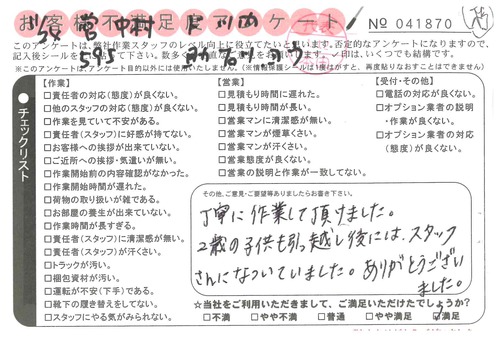 お客様不満足度アンケート
№ 041870
営 中村
このアンケートは、弊社作業スタッフのレベル向上に役立てたいと思います。否定的なアンケートになりますので、
記入後シールを
下さい。
印は、いくつでも結構です。
※このアンケートは、アンケート目的以外には使用いたしません。(※情報保護シールは1度はがすと、再度貼りなおすことはできません)
チェックリスト
【作業】
□責任者の対応(態度)が良くない。
□他のスタッフの対応(態度)が良くない。
□作業を見ていて不安がある。
□責任者(スタッフ)に好感が持てない。
□お客様への挨拶が出来ていない。
□ご近所への挨拶・気遣いが無い。
□作業開始前の内容確認がなかった。
□作業開始時間が遅れた。
□荷物の取り扱いが雑である。
□お部屋の養生が出来ていない。
□作業時間が長すぎる。
□責任者(スタッフ)に清潔感が無い。
□責任者(スタッフ)が汗くさい。
□トラックが汚い。
□梱包資材が汚い。
□運転が不安(下手)である。
□靴下の履き替えをしてない。
□スタッフにやる気がみられない。
【営業】
□見積もり時間に遅れた。
□見積もり時間が長い。
□営業マンに清潔感が無い。
□営業マンが煙草くさい。
□営業マンが汗くさい。
□営業態度が良くない。
□営業の説明と作業が一致してない。
【受付・その他】
□電話の対応が良くない。
□オプション業者の説明
・作業が良くない。
□オプション業者の対応
(態度)が良くない。
その他、ご意見・ご要望等ありましたらお書き下さい。
丁寧に作業して頂けました。
2歳の子供も引っ越し後には、スタッフ
さんになついていました。ありがとうござい
ました。
☆当社をご利用いただきまして、ご満足いただけたでしょうか?
□不満 □やや不満 □普通 □やや満足 ☑満足